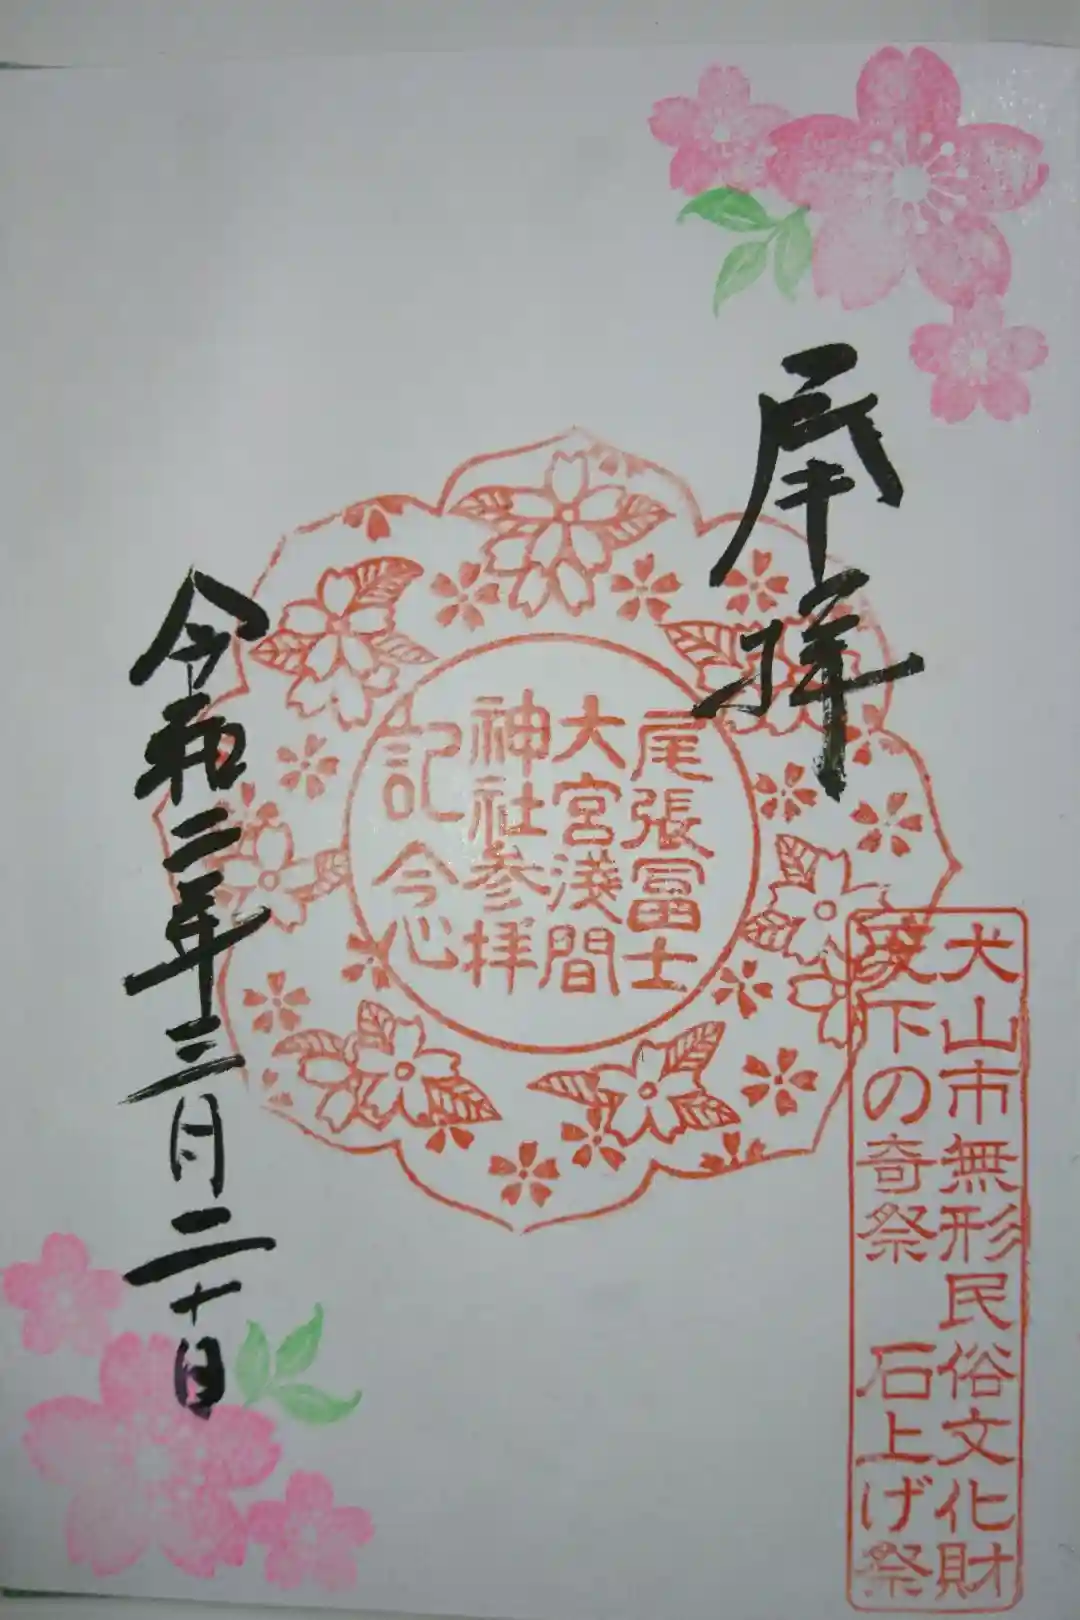 奉拝
尾張冨士
大宮浅間
神社参拝
記念
犬山市無形民俗文化財
天下の奇祭 石上げ祭
令和二年三月二十日